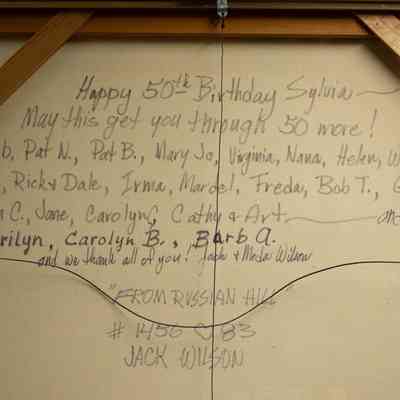 Happy 50th Birthday Sylvia
May this get you through 50 more!
b, Pat N., Pat B., Mary Jo, Virginia, Nana, Helen, W
, Rick & Dale, Irma, Marcel, Freda, Bob T., G
n C., Jane, Carolyn G, Cathy & Art and
rilyn, Carolyn B., Barb A.
and we thank all of you! Jack & Meda Wilson
"FROM RUSSIAN HILL
# 1456 83
JACK WILSON